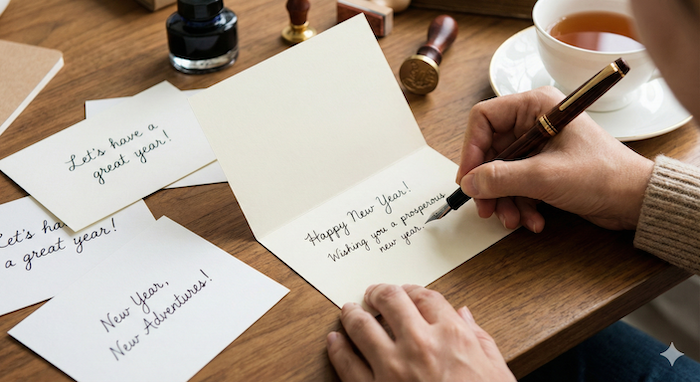 Let's have a
great year!
Let's ha
a great year!
New Year,
New Adventures!
Happy New Year!
Wishing you a prosperous
new year.